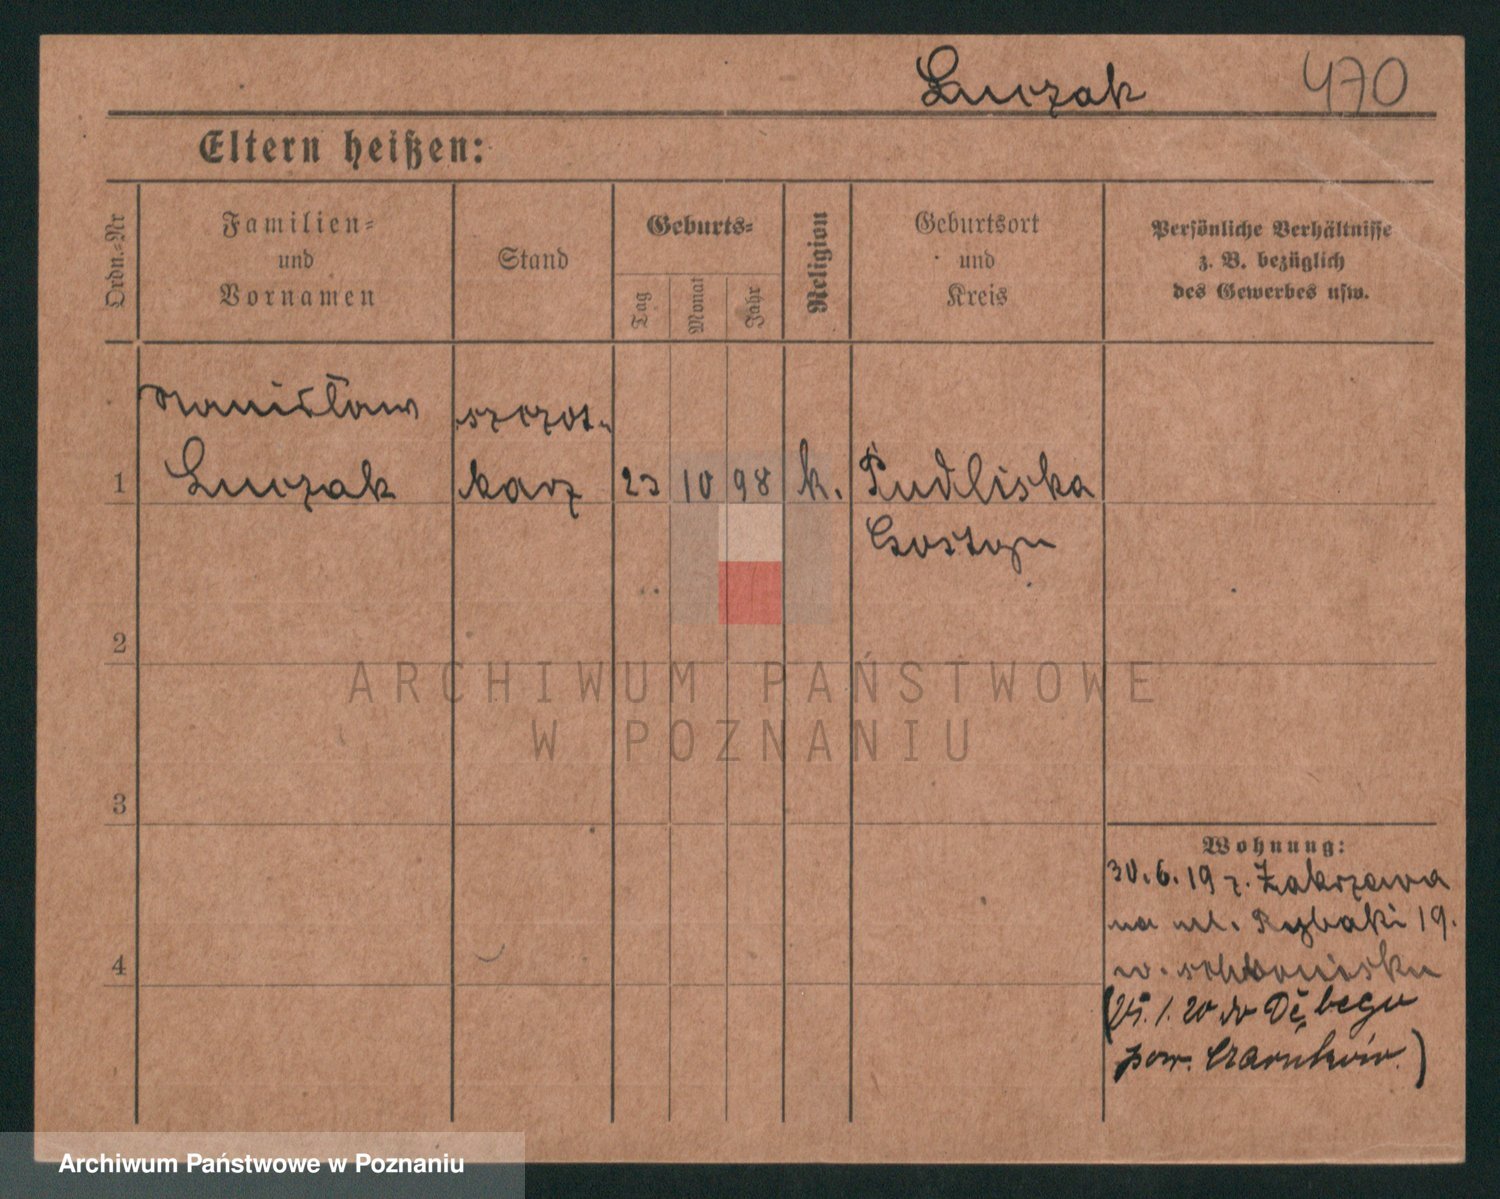 Łuczak 470
Eltern heißen:
Ordn.-Nr
Familien-
und
Vornamen
Stand
Geburts-
Tag
Monat
Jahr
Religion
Geburtsort
und
Kreis
Persönliche Verhältnisse
z. B. bezüglich
des Gewerbes usw.
Stanisław szczot-
1 Łuczak karz 23 10 98 k. Pudliska
Gostyn
2
3
4
Wohnung:
30.6.19 z. Zakrzewa
na ul. Rybaki 19.
w. schronisku
(25.1.20 do Dębego
pow. Czarnków.)
ARCHIWUM PAŃSTWOWE
W POZNANIU
Archiwum Państwowe w Poznaniu